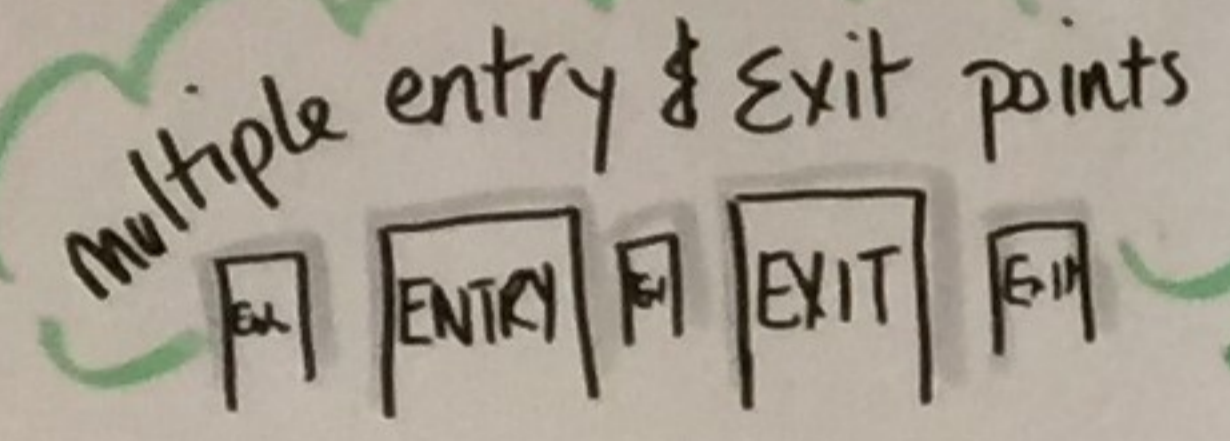 Multiple entry & Exit points
ENTRY
EXIT